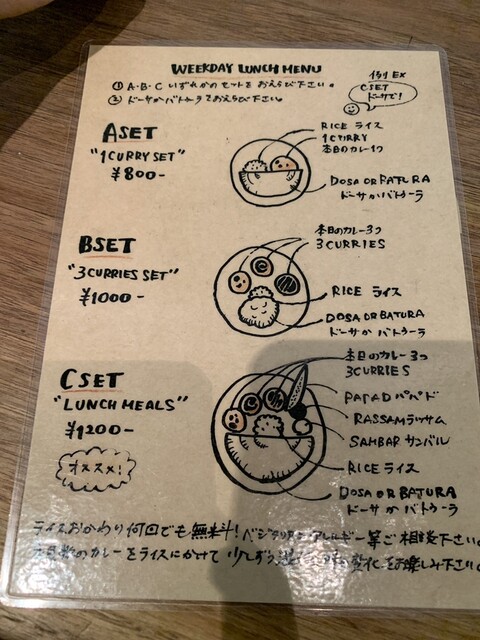 WEEKDAY LUNCH MENU
① A・B・C いずれかのセットをおえらび下さい。
② ドーサかバトゥーラをおえらび下さい。
例 EX
CSET
ドーサで!
A SET
"1 CURRY SET"
¥800-
RICE ライス
1 CURRY
本日のカレー1つ
DOSA OR BATURA
ドーサかバトゥーラ
B SET
"3 CURRIES SET"
¥1000-
本日のカレー3つ
3 CURRIES
RICE ライス
DOSA OR BATURA
ドーサかバトゥーラ
C SET
"LUNCH MEALS"
¥1200-
オススメ!
本日のカレー3つ
3 CURRIES
PAPAD パパド
RASSAM ラッサム
SAMBAR サンバル
RICE ライス
DOSA OR BATURA
ドーサか バトゥーラ
ライスおかわり何回でも無料! ベジタリアン アレルギー等ご相談下さい。
のカレーをライスにかけて 少しずつ 味の変化をお楽しみ下さい